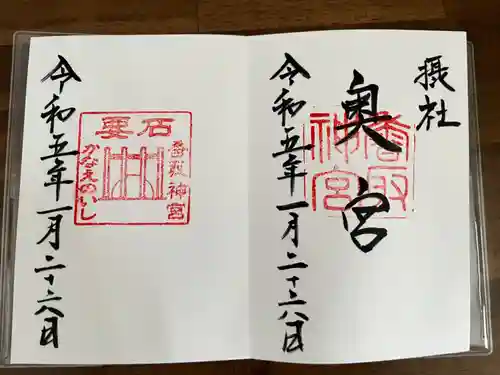 摂社
奥宮
香取
神宮
令和五年一月二十六日
石要
香取神宮
かなえのいし
令和五年一月二十六日